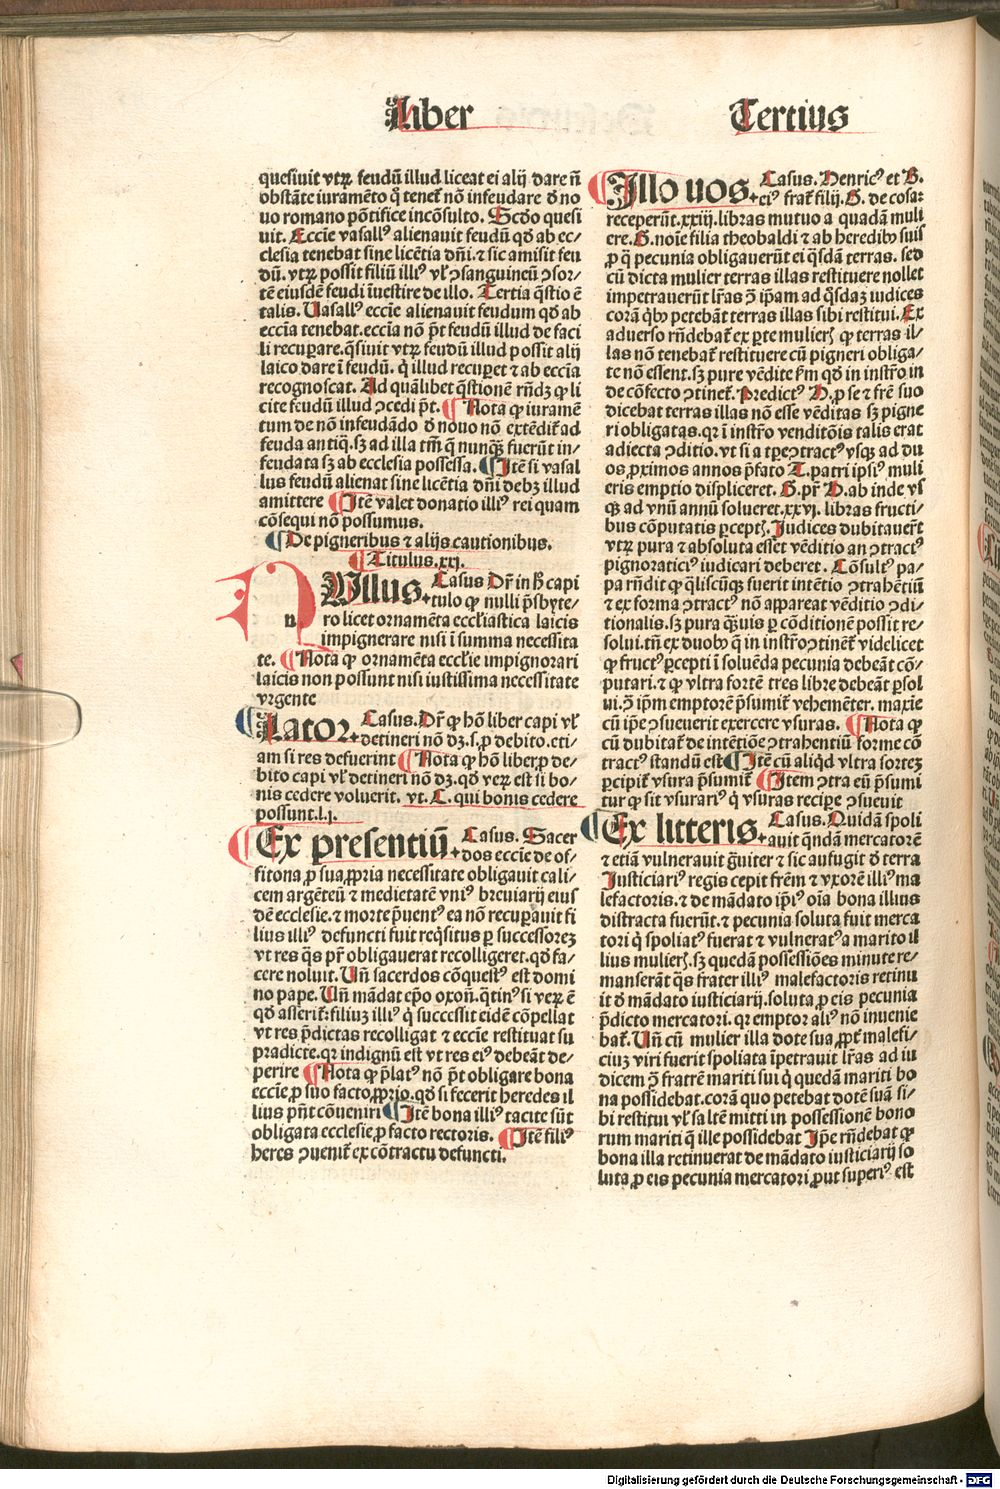 Liber Tercius
quesiuit vtꝝ feudū illud liceat ei alij dare ñ
obstāte iuramēto ꝙ̄ tenet̄ nō infeudare ð no
uo romano pōtifice incōsulto. Scđo quesi
uit. Eccīe vasallꝰ alienauit feudū qđ ab ec⸗
clesia tenebat sine licētia dn̄i. ⁊ sic amisit feu
dū. vtꝝ possit filiū illiꝰ vl̓ ꝯsanguineū ꝯsor⸗
tē eiusdē feudi īuestire de illo. Tertia q̄stio ē
talis. Uasallꝰ eccīe alienauit feudum qđ ab
eccīa tenebat. eccīa nō p̄t feudū illud de faci
li recuꝑare. q̄siuit vtꝝ feudū illud possit alij
laico dare ī feudū. q̇ illud recuꝑet ⁊ ab eccīa
recognoscat. Ad quālibet q̄stionē rn̄dꝫ ꝙ li
cite feudū illud ꝯcedi p̄t. ¶ Nota ꝙ iuramē
tum de nō infeudādo ð nouo nō extēdit̄ ad
feuda antiq̄. sꝫ ad illa tm̄ q̄ nunqꝫ̄ fuerūt in⸗
feudata sꝫ ab ecclesia possessa. ¶ Itē si vasal
lus feudū alienat sine licētia dn̄i debꝫ illud
amittere ¶ Itē valet donatio illiꝰ rei quam
cōsequi nō possumus.
¶ De pigneribus ⁊ alijs cautionibus.
¶ Titulus. xxj.
n Ullus. Casus Dr̄ in h̄ capi
tulo ꝙ nulli p̄sbyte⸗
ro licet ornamēta eccl̓iastica laicis
impignerare nisi ī summa necessita
te. ¶ Nota ꝙ ornamēta eccl̓ie impignorari
laicis non possunt nisi iustissima necessitate
vrgente
¶ Lator. Casus. Dr̄ ꝙ hō liber capi vl̓
detineri nō dꝫ. s. ꝓ debito. eti⸗
am si res defuerint ¶ Nota ꝙ hō liber ꝓ de⸗
bito capi vl̓ detineri nō dꝫ. qđ veꝝ est si bo⸗
nis cedere voluerit. vt. C. qui bonis cedere
possunt. l. j.
¶ Ex presentiū. Casus. Sacer
dos eccīe de of⸗
fitona ꝓ sua ꝓpria necessitate obligauit cali⸗
cem argēteū ⁊ medietatē vniꝰ breuiarij eius
dē ecclesie. ⁊ morte p̄uentꝰ ea nō recuꝑauit fi
lius illiꝰ defuncti fuit reqͥsitus ꝑ successoreꝫ
vt res q̄s pr̄ obligauerat recolligeret. qđ fa⸗
cere noluit. Un̄ sacerdos cōquestꝰ est domi
no pape. Un̄ mādat ep̄o oxon̄. qͥtinꝰ si veꝝ ē
qđ asserit̄: filiuꝫ illiꝰ q̇ successit eidē cōpellat
vt res p̄dictas recolligat ⁊ eccīe restituat su
pradicte. qꝛ indignū est vt res eiꝰ debeāt de⸗
perire ¶ Nota ꝙ p̄latꝰ nō p̄t obligare bona
eccīe, ꝓ suo facto ꝓprio. qđ si fecerit heredes il
lius pn̄t cōueniri ¶ Itē bona illiꝰ tacite sūt
obligata ecclesie, ꝓ facto rectoris. ¶ Itē filiꝰ
heres ꝯuenit̄ ex cōtractu defuncti.
¶ Illo uos. Casus. Henricꝰ et B.
eiꝰ frat̄ filij. G. de cosa⸗
receperūt. xxiij. libras mutuo a quadā muli
ere. B. noīe filia theobaldi ⁊ ab heredibꝰ suis
ꝓ q̄ pecunia obligauerūt ei q̄sdā terras. sed
cū dicta mulier terras illas restituere nollet
impetrauerūt lr̄as ꝯ̄ ip̄am ad q̄sdaꝫ iudices
corā qͥbꝰ petebāt terras illas sibi restitui. Ex
aduerso rn̄debat̄ ex ꝑte mulierꝭ ꝙ terras il⸗
las nō tenebat̄ restituere cū pigneri obliga⸗
te nō essent. sꝫ pure vēdite ẜm qđ in instr̄o in
de cōfecto ꝯtinet̄. Predictꝰ H. ꝓ se ⁊ fr̄e suo
dicebat terras illas nō esse vēditas sꝫ pigne
ri obligatas. qꝛ ī instr̄o venditōis talis erat
adiecta ꝯditio. vt si a tꝑe ꝯtractꝰ vsqꝫ ad du
os ꝓximos annos p̄fato T. patri ipsiꝰ muli
eris emptio displiceret. G. pr̄ H. ab inde vs
qꝫ ad vnū annū solueret. xxvj. libras fructi⸗
bus cōputatis ꝑceptꝭ. Judices dubitauer̄t
vtꝝ pura ⁊ absoluta esset vēditio an ꝯtractꝰ
pignoraticiꝰ iudicari deberet. Cōsultꝰ pa⸗
pa rn̄dit ꝙ qͥliscūqꝫ fuerit intētio ꝯtrahētiū
⁊ ex forma ꝯtractꝰ nō appareat vēditio ꝯdi⸗
tionalis. sꝫ pura qͣuis ꝑ cōditionē possit re⸗
solui. tn̄ ex duobꝰ q̄ in instr̄o ꝯtinēt̄ videlicet
ꝙ fructꝰ ꝑcepti ī soluēda pecunia debeāt cō⸗
putari. ⁊ ꝙ vltra fortē tres libre debeāt ꝑsol
ui. ꝯ̄ ip̄m emptorē p̄sumit̄ vehemēter. maxīe
cū ip̄e ꝯsueuerit exercere vsuras. ¶ Nota ꝙ
cū dubitat̄ de intētiōe ꝯtrahentiū forme cō
tractꝰ standū est ¶ Itē cū aliqͥd vltra sorteꝫ
ꝑcipit̄ vsura p̄sumit̄ ¶ Item ꝯtra eū p̄sumi
tur ꝙ sit vsurariꝰ q̇ vsuras recipe ꝯsueuit
¶ Ex litteris. Casus. Quidā spoli
auit q̄ndā mercatorē
⁊ etiā vulnerauit g̈uiter ⁊ sic aufugit ð terra
Justiciariꝰ regis cepit frēm ⁊ vxorē illiꝰ ma
lefactoris. ⁊ de mādato ip̄iꝰ oīa bona illius
distracta fuerūt. ⁊ pecunia soluta fuit merca
tori q̇ spoliatꝰ fuerat ⁊ vulneratꝰ a marito il
lius mulierꝭ. sꝫ quedā possessiōes minute re⸗
manserāt q̄s frater illiꝰ malefactoris retinu
it ð mādato iusticiarij. soluta, ꝓ eis pecunia
p̄dicto mercatori. qꝛ emptor aliꝰ nō inuenie
bat̄. Un̄ cū mulier illa dote sua, ꝓpt̄ malefi⸗
ciuꝫ viri fuerit spoliata īpetrauit lr̄as ad iu
dicem ꝯ̄ fratrē mariti sui q̇ quedā mariti bo
na possidebat. corā quo petebat dotē suā si⸗
bi restitui vl̓ saltē mitti in possessionē bono
rum mariti q̄ ille possidebat Ip̄e rn̄debat ꝙ
bona illa retinuerat de mādato iusticiarij so
luta ꝓ eis pecunia mercatori, ꝓut superiꝰ est
Digitalisierung gefördert durch die Deutsche Forschungsgemeinschaft - DFG